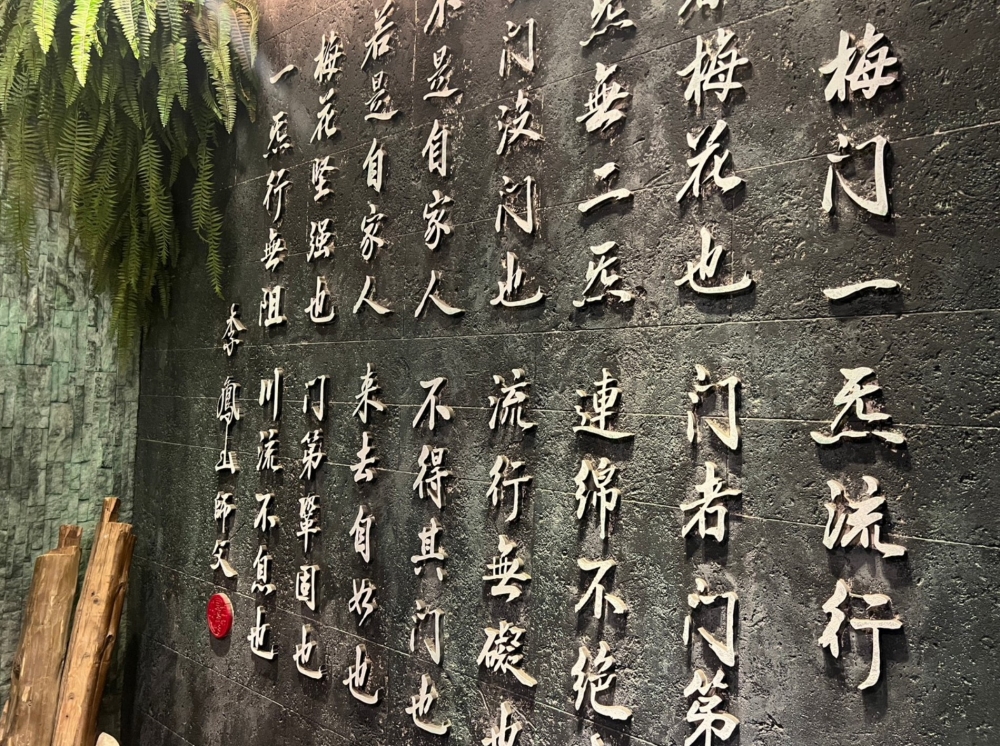 梅门一炁流行
梅花也 门者门第
炁無二炁 連绵不绝
门没门也 流行無礙也
不是自家人 不得其门也
若是自家人 来去自如也
梅花坚强也 门第鞏固也
一炁行無阻 川流不息也
李鳳山師父